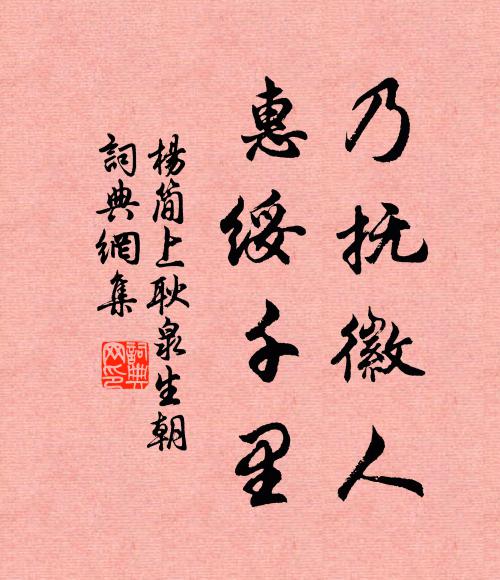 乃抚徽人
惠绥千里
楊简上耿泉生朝
詞典網集
詞典网印